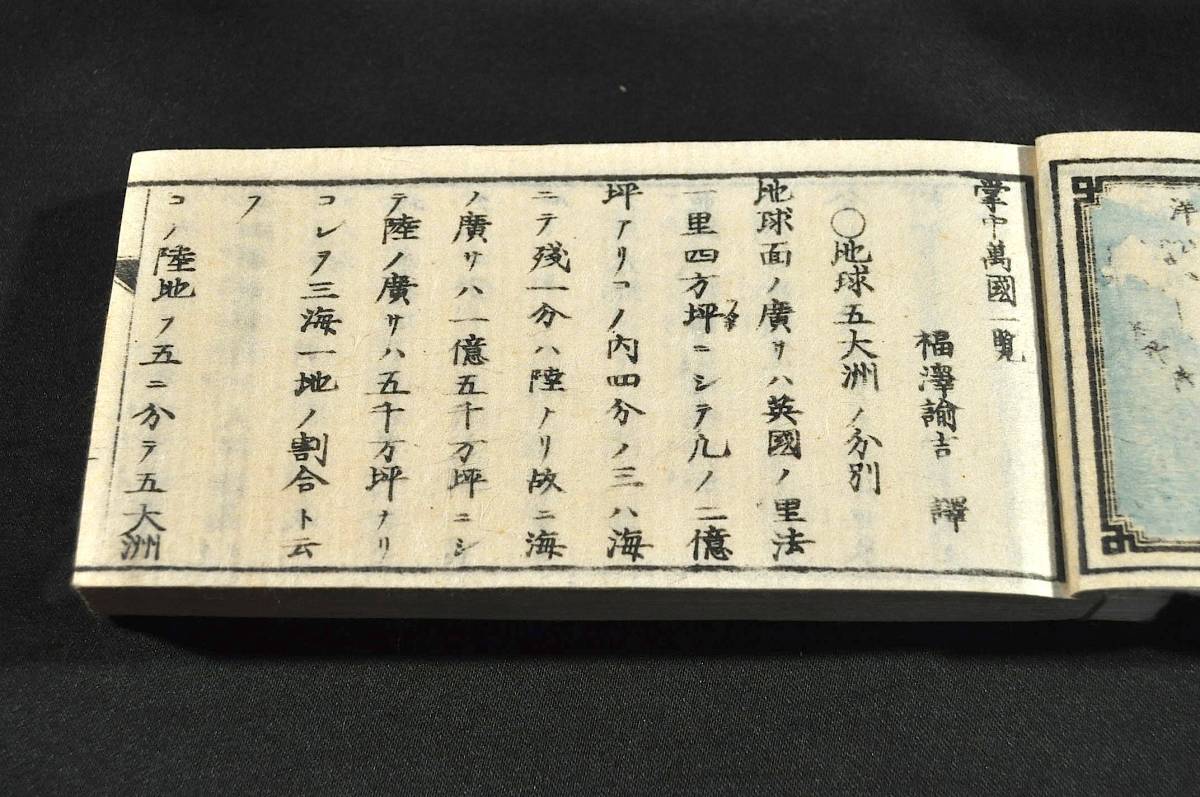 掌中萬國一覧
福澤諭吉 譯
○地球五大洲ノ分別
地球面ノ廣サハ英國ノ里法
一里四方坪ニシテ凡ソ二億
坪アリコノ内四分ノ三ハ海
ニテ残一分ハ陸ナリ故ニ海
ノ廣サハ一億五千万坪ニシ
テ陸ノ廣サハ五千万坪ナリ
コレヲ三海一地ノ割合ト云
フ
コノ陸地ヲ五ニ分テ五大洲
洋